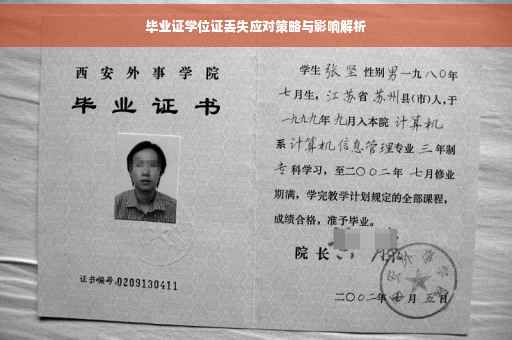 毕业证学位证丢失应对策略与影响解析
西安外事学院
毕业证书
证书编号:0209130411
学生 张坚 性别 男 一九八〇年
七月生，江苏省 苏州 县(市)人,于
一九九九年 九月入本院 计算机
系 计算机信息管理 专业 三 年制
专 科学习，至二〇〇二年 七月修业
期满，学完教学计划规定的全部课程，
成绩合格，准予毕业。
院长
二〇〇二年 月 五 日